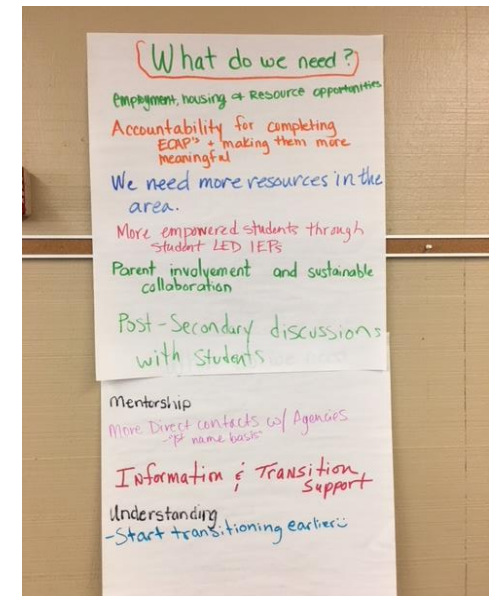 What do we need?
Employment, housing & Resource opportunities
Accountability for completing
ECAP's + making them more
meaningful
We need more resources in the
area.
More empowered students through
student LED IEPs
Parent involvement and sustainable
collaboration
Post-Secondary discussions
with Students
Mentorship
More Direct contacts w/ Agencies
-"1st name basis"
Information & Transition
Support
Understanding
-Start transitioning earlier